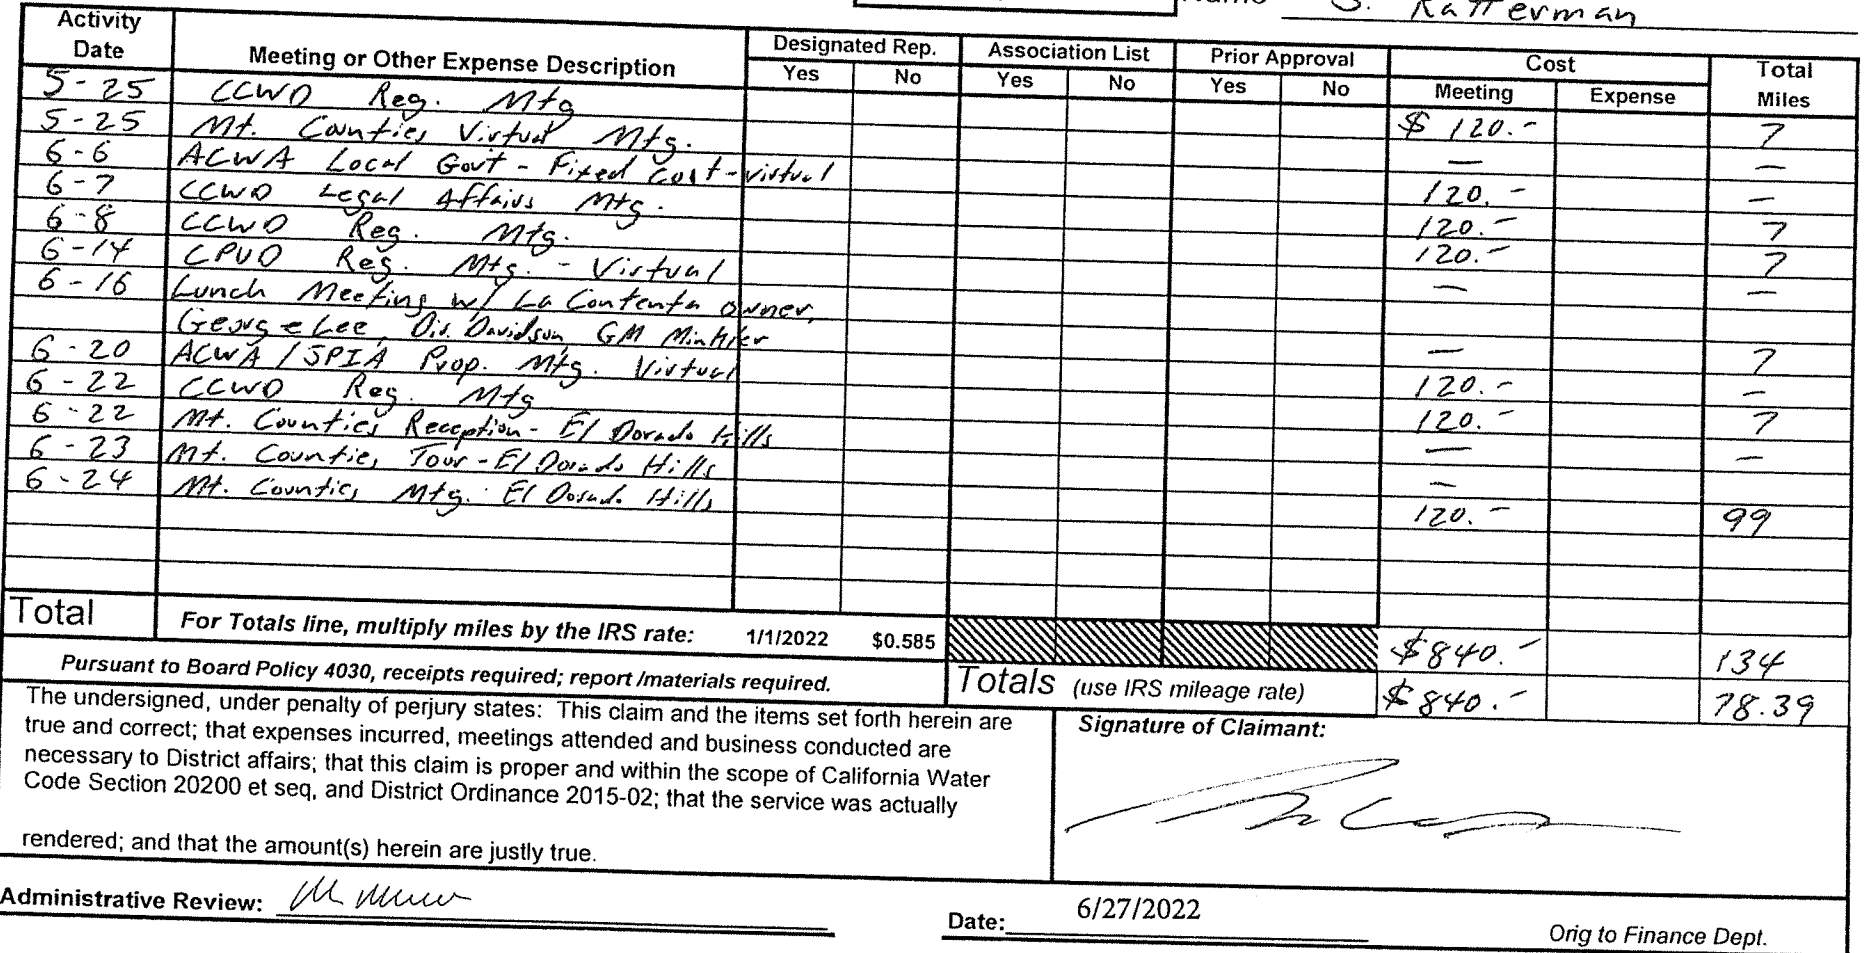 Name S. Ratterman
Activity Date Meeting or Other Expense Description Designated Rep. Association List Prior Approval Cost Total Miles
Yes No Yes No Yes No Meeting Expense
5-25 CCWD Reg. Mtg $120.- 7
5-25 Mt. Counties Virtual Mtg. — —
6-6 ACWA Local Govt - Fixed Cost - virtual 120.- —
6-7 CCWD Legal Affairs Mtg. 120.- 7
6-8 CCWD Reg. Mtg. 120.- 7
6-14 CPUD Reg. Mtg. - Virtual — —
6-16 Lunch Meeting w/ La Contenta owner,
George Lee, Dir. Davidson, GM Minkler — 7
6-20 ACWA/JPIA Prop. Mtg. Virtual 120.- —
6-22 CCWD Reg. Mtg 120.- 7
6-22 Mt. Counties Reception - El Dorado Hills — —
6-23 Mt. Counties Tour - El Dorado Hills —
6-24 Mt. Counties Mtg. El Dorado Hills 120.- 99
Total For Totals line, multiply miles by the IRS rate: 1/1/2022 $0.585 $840.- 134
Pursuant to Board Policy 4030, receipts required; report /materials required. Totals (use IRS mileage rate) $840.- 78.39
The undersigned, under penalty of perjury states: This claim and the items set forth herein are
true and correct; that expenses incurred, meetings attended and business conducted are
necessary to District affairs; that this claim is proper and within the scope of California Water
Code Section 20200 et seq, and District Ordinance 2015-02; that the service was actually
rendered; and that the amount(s) herein are justly true.
Signature of Claimant:
Administrative Review:
Date: 6/27/2022
Orig to Finance Dept.